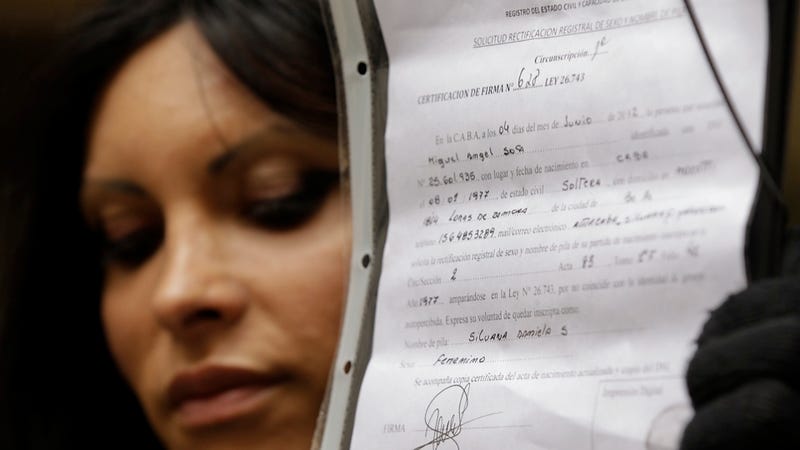 REGISTRO DEL ESTADO CIVIL Y CAPACIDAD DE
SOLICITUD RECTIFICACIÓN REGISTRAL DE SEXO Y NOMBRE DE PILA
Circunscripción 1º
CERTIFICACION DE FIRMA Nº 628 LEY 26.743
En la C.A.B.A. a los 04 días del mes de Junio de 2012 la presente
Miguel Angel SOSA
Nº 25.601.935, con lugar y fecha de nacimiento en CABA
el 08.01.1977, de estado civil SOLTERA con domicilio en
LOMAS DE ZAMORA de la ciudad de
teléfono 1564853289 mail/correo electrónico
la rectificación registral de sexo y nombre de pila de su partida de nacimiento
Circ/Sección 2 Acta 83 Tomo
Año 1977 amparándose en la Ley Nº 26.743, por no coincidir con la identidad de género
autopercibida. Expresa su voluntad de quedar inscripta como:
Nombre de pila: SILVANA Daniela S
Sexo Femenino
Se acompaña copia certificada del acta de nacimiento actualizada y copia del DNI.
Impresión Digital
FIRMA